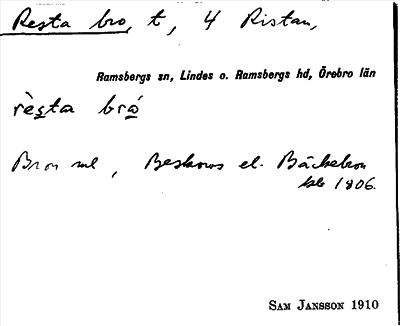 Resta bro, t, 4 Ristan,
Ramsbergs sn, Lindes o. Ramsbergs hd, Örebro län
rè̱sta brá̱
Bron ml, Beskows el. Bäckebron
kb 1806.
SAM JANSSON 1910